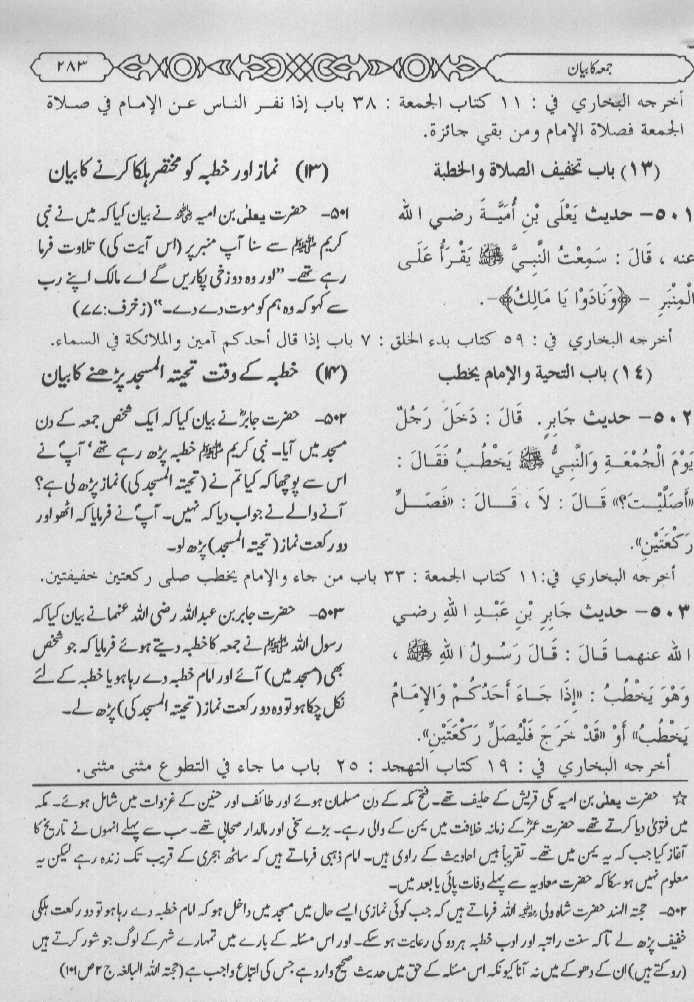 جمعہ کا بیان
۲۸۳
أخرجه البخاري في : ١١ كتاب الجمعة : ٣٨ باب إذا نفر الناس عن الإمام في صلاة
الجمعة فصلاة الإمام ومن بقي جائزة.
(١٣) باب تخفيف الصلاة والخطبة
٥٠١- حديث يَعْلَى بْنِ أُمَيَّةَ رضي الله
عنه ، قَالَ : سَمِعْتُ النَّبِيَّ ﷺ يَقْرَأُ عَلَى
الْمِنْبَرِ - ﴿وَنَادَوْا يَا مَالِكُ﴾-.
(۱۳) نماز اور خطبہ کو مختصر ہلکا کرنے کا بیان
۵۰۱- حضرت یعلی بن امیہ ؓ نے بیان کیا کہ میں نے نبی
کریم ﷺ سے سنا آپ منبر پر (اس آیت کی) تلاوت فرما
رہے تھے۔ ”اور وہ دوزخی پکاریں گے اے مالک اپنے رب
سے کہو کہ وہ ہم کو موت دے دے۔“ (زخرف: ۷۷)
أخرجه البخاري في : ٥٩ كتاب بدء الخلق : ٧ باب إذا قال أحدكم آمين والملائكة في السماء.
(١٤) باب التحية والإمام يخطب
٥٠٢- حديث جَابِرٍ. قَالَ : دَخَلَ رَجُلٌ
يَوْمَ الْجُمُعَةِ وَالنَّبِيُّ ﷺ يَخْطُبُ فَقَالَ :
«أَصَلَّيْتَ؟» قَالَ : لاَ ، قَالَ : «فَصَلِّ
رَكْعَتَيْنِ».
(۱۴) خطبہ کے وقت تحیتہ المسجد پڑھنے کا بیان
۵۰۲- حضرت جابرؓ نے بیان کیا کہ ایک شخص جمعہ کے دن
مسجد میں آیا۔ نبی کریم ﷺ خطبہ پڑھ رہے تھے‘ آپؐ نے
اس سے پوچھا کہ کیا تم نے (تحیتہ المسجد کی) نماز پڑھ لی ہے؟
آنے والے نے جواب دیا کہ نہیں۔ آپؐ نے فرمایا کہ اٹھو اور
دو رکعت نماز (تحیتہ المسجد) پڑھ لو۔
أخرجه البخاري في: ١١ كتاب الجمعة : ٣٣ باب من جاء والإمام يخطب صلى ركعتين خفيفتين.
٥٠٣- حديث جَابِرِ بْنِ عَبْدِ اللهِ رضي
الله عنهما قَالَ : قَالَ رَسُولُ اللهِ ﷺ ،
وَهُوَ يَخْطُبُ : «إِذَا جَاءَ أَحَدُكُمْ وَالإِمَامُ
يَخْطُبُ» أَوْ «قَدْ خَرَجَ فَلْيُصَلِّ رَكْعَتَيْنِ».
۵۰۳- حضرت جابر بن عبداللہ رضی اللہ عنہما نے بیان کیا کہ
رسول اللہ ﷺ نے جمعہ کا خطبہ دیتے ہوئے فرمایا کہ جو شخص
بھی (مسجد میں) آئے اور امام خطبہ دے رہا ہو یا خطبہ کے لئے
نکل چکا ہو تو وہ دو رکعت نماز (تحیتہ المسجد کی) پڑھ لے۔
أخرجه البخاري في : ١٩ كتاب التهجد : ٢٥ باب ما جاء في التطوع مثنى مثنى.
☆ حضرت یعلی بن امیہ مکی قریش کے حلیف تھے۔ فتح مکہ کے دن مسلمان ہوئے اور طائف اور حنین کے غزوات میں شامل ہوئے۔ مکہ
میں فتویٰ دیا کرتے تھے۔ حضرت عمرؓ کے زمانہ خلافت میں یمن کے والی رہے۔ بڑے سخی اور مالدار صحابی تھے۔ سب سے پہلے انہوں نے تاریخ کا
آغاز کیا جب کہ یہ یمن میں تھے۔ تقریباً بیس احادیث کے راوی ہیں۔ امام ذہبی فرماتے ہیں کہ ساٹھ ہجری کے قریب تک زندہ رہے لیکن یہ
معلوم نہیں ہو سکا کہ حضرت معاویہ سے پہلے وفات پائی یا بعد میں۔
۵۰۲- حجتہ الہند حضرت شاہ ولی اللہ فرماتے ہیں کہ جب کوئی نمازی ایسے حال میں مسجد میں داخل ہو کہ امام خطبہ دے رہا ہو تو دو رکعت ہلکی
خفیف پڑھ لے تاکہ سنت راتبہ اور ادب خطبہ ہر دو کی رعایت ہو سکے۔ اور اس مسئلہ کے بارے میں تمہارے شہر کے لوگ جو شور کرتے ہیں
(روکتے ہیں) ان کے دھوکے میں نہ آنا کیونکہ اس مسئلہ کے حق میں حدیث صحیح وارد ہے جس کی اتباع واجب ہے (حجتہ اللہ البالغہ ج ۲ ص ۱۰۱)